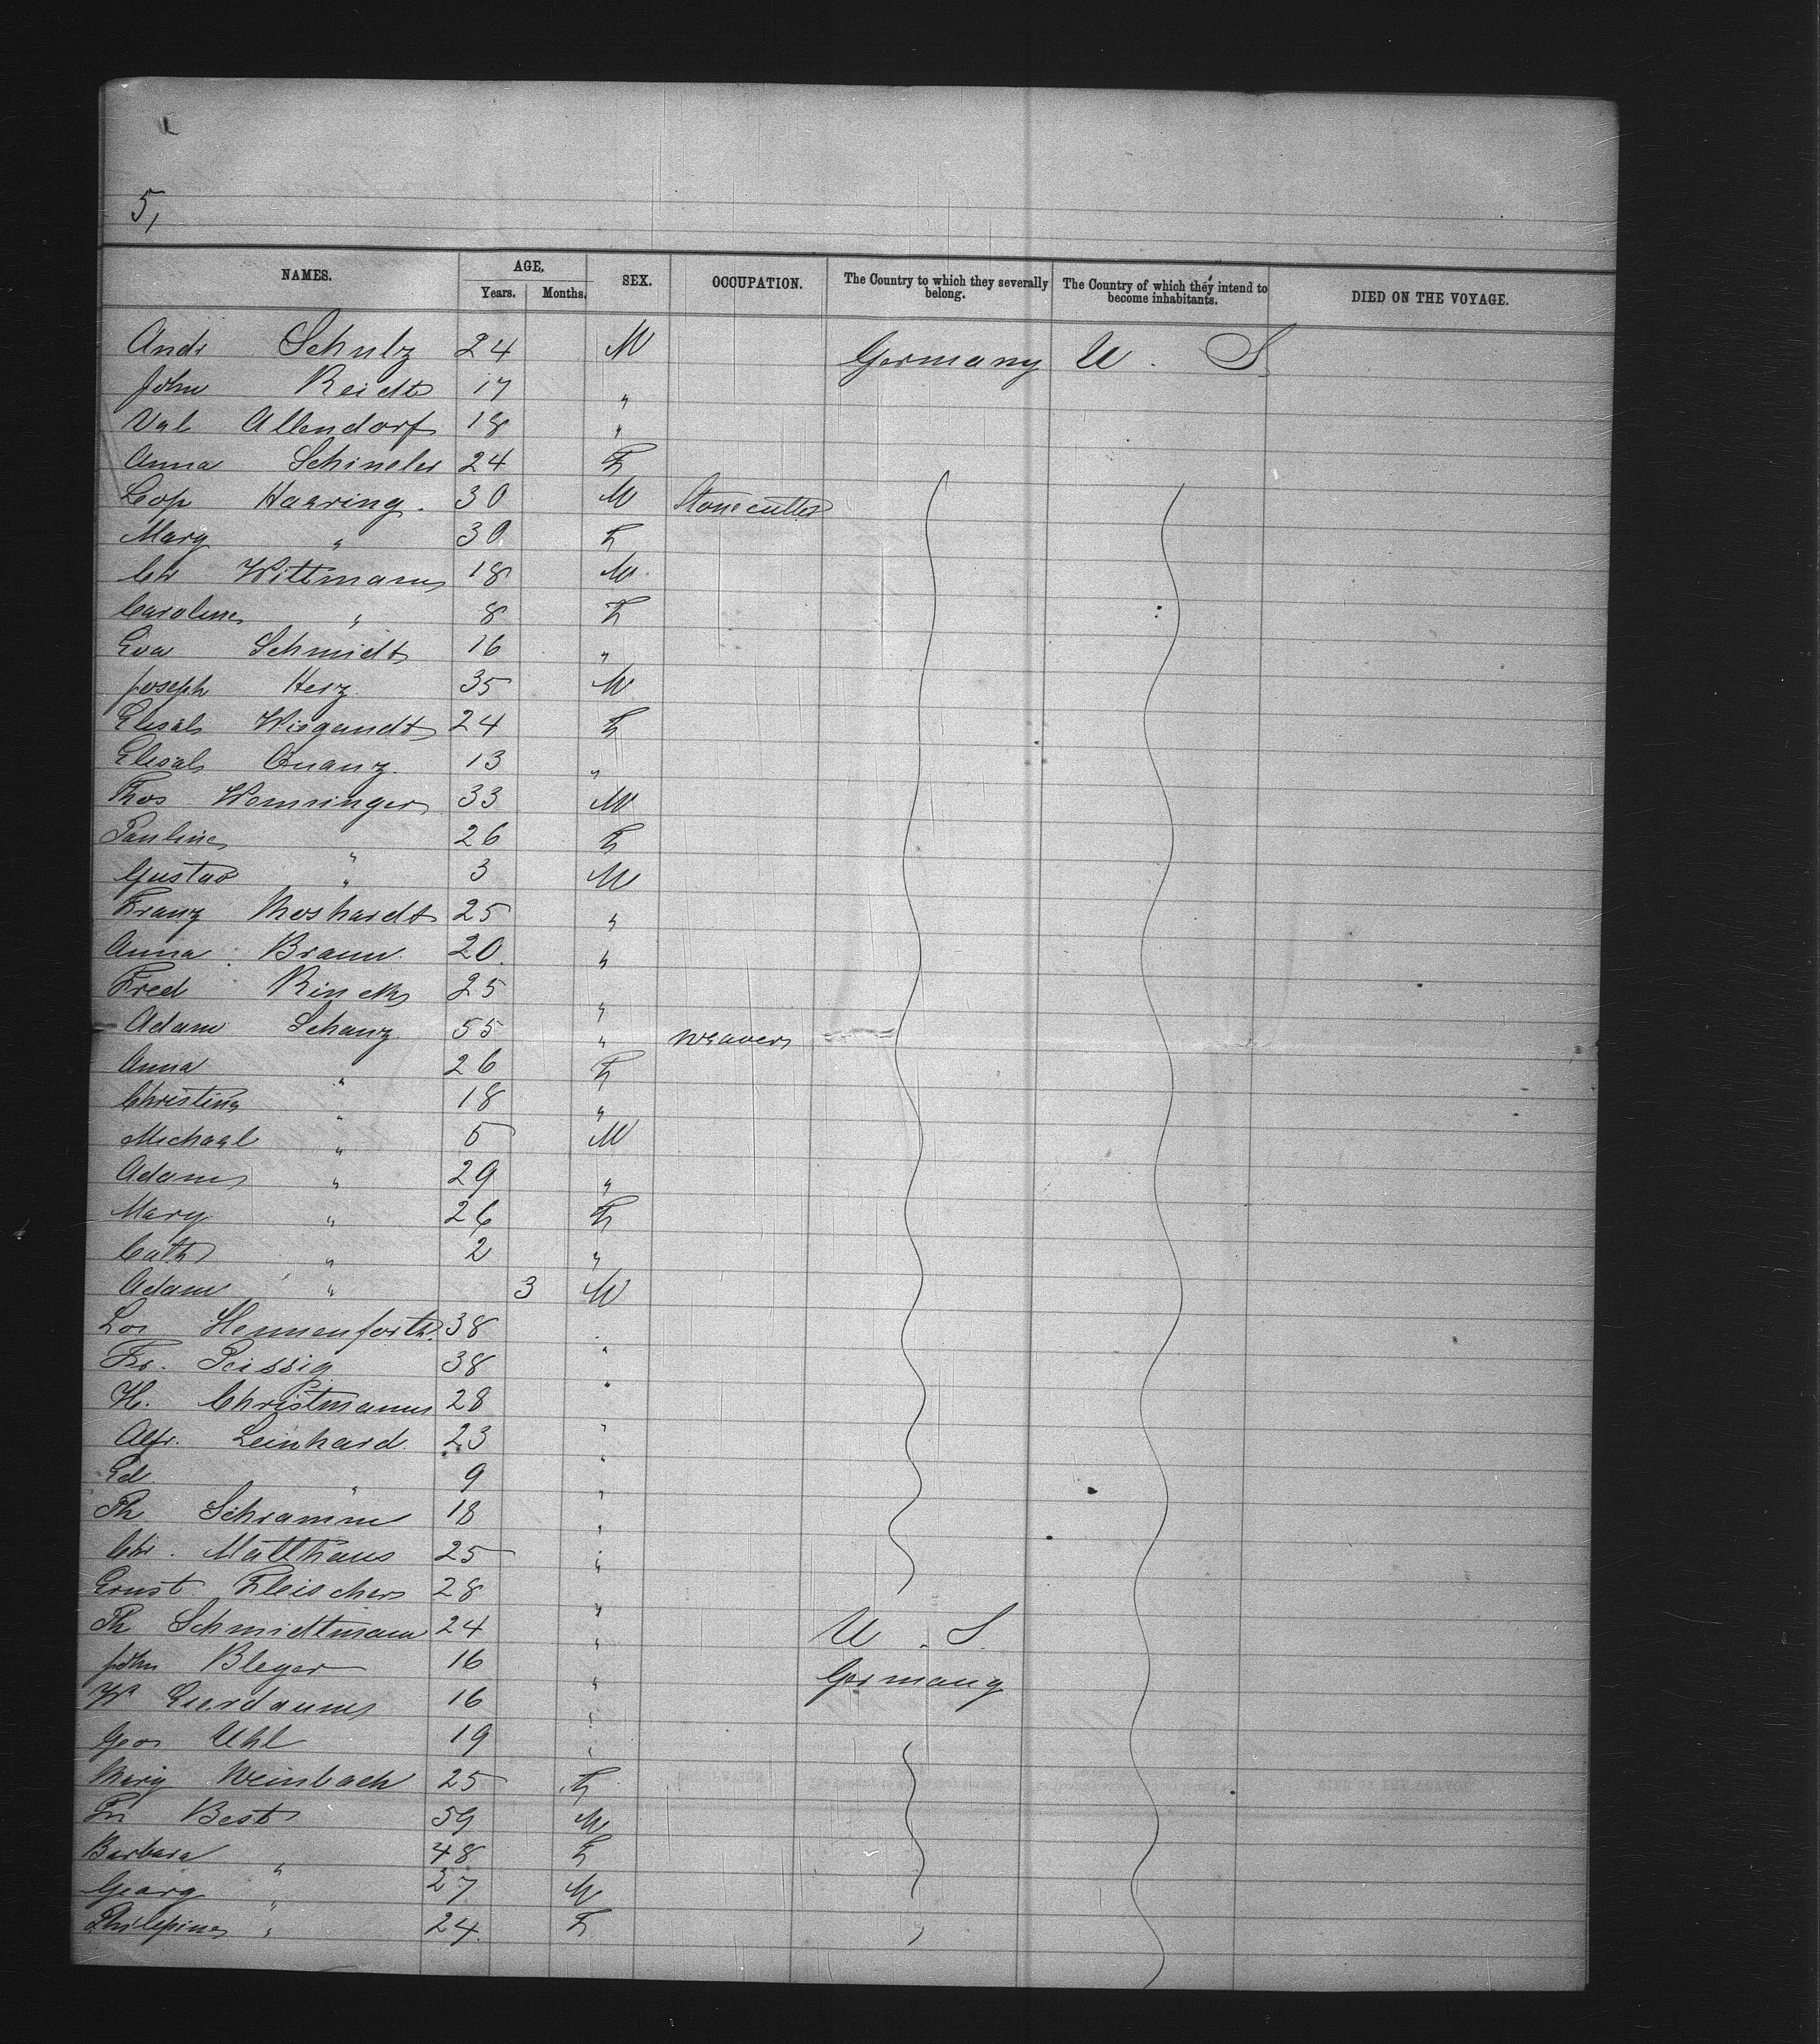 5,
NAMES. AGE. Years. Months. SEX. OCCUPATION. The Country to which they severally belong. The Country of which they intend to become inhabitants. DIED ON THE VOYAGE.
Andr Schulz 24 M Germany U. S.
John Reidt 17 "
Val Allendorf 18 "
Anna Schineler 24 F
Leop Haaring. 30 M Stonecutter
Mary " 30 F
Chr Wittmann 18 M
Caroline " 8 F
Eva Schmidt 16 "
Joseph Herz 35 M
Elisab Wiegandt 24 F
Elisab Quanz 13 "
Thos Wemsinger 33 M
Pauline " 26 F
Gustav " 3 M
Franz Moshardt 25 "
Anna Braun 20 "
Fred Rinck 25 "
Adam Schanz 55 " weaver
Anna " 26 F
Christina " 18 "
Michael " 5 M
Adam " 29 "
Mary " 26 F
Cath " 2 "
Adam " 3 M
Lor Hennenforth 38 "
Fr. Peissig 38 "
H. Christmann 28 "
Alfr. Leinhard 23 "
Ed " 9 "
Ph Schramm 18 "
Chr. Matthaus 25 "
Ernst Fleischer 28 "
Ph Schmidtmann 24 " U. S.
John Bleyer 16 " Germany
W 16 "
Geo Uhl 19 "
Mary Weinbach 25 F
Fr Best 59 M
Barbara " 48 F
Georg " 27 M
Philipine " 24 F "